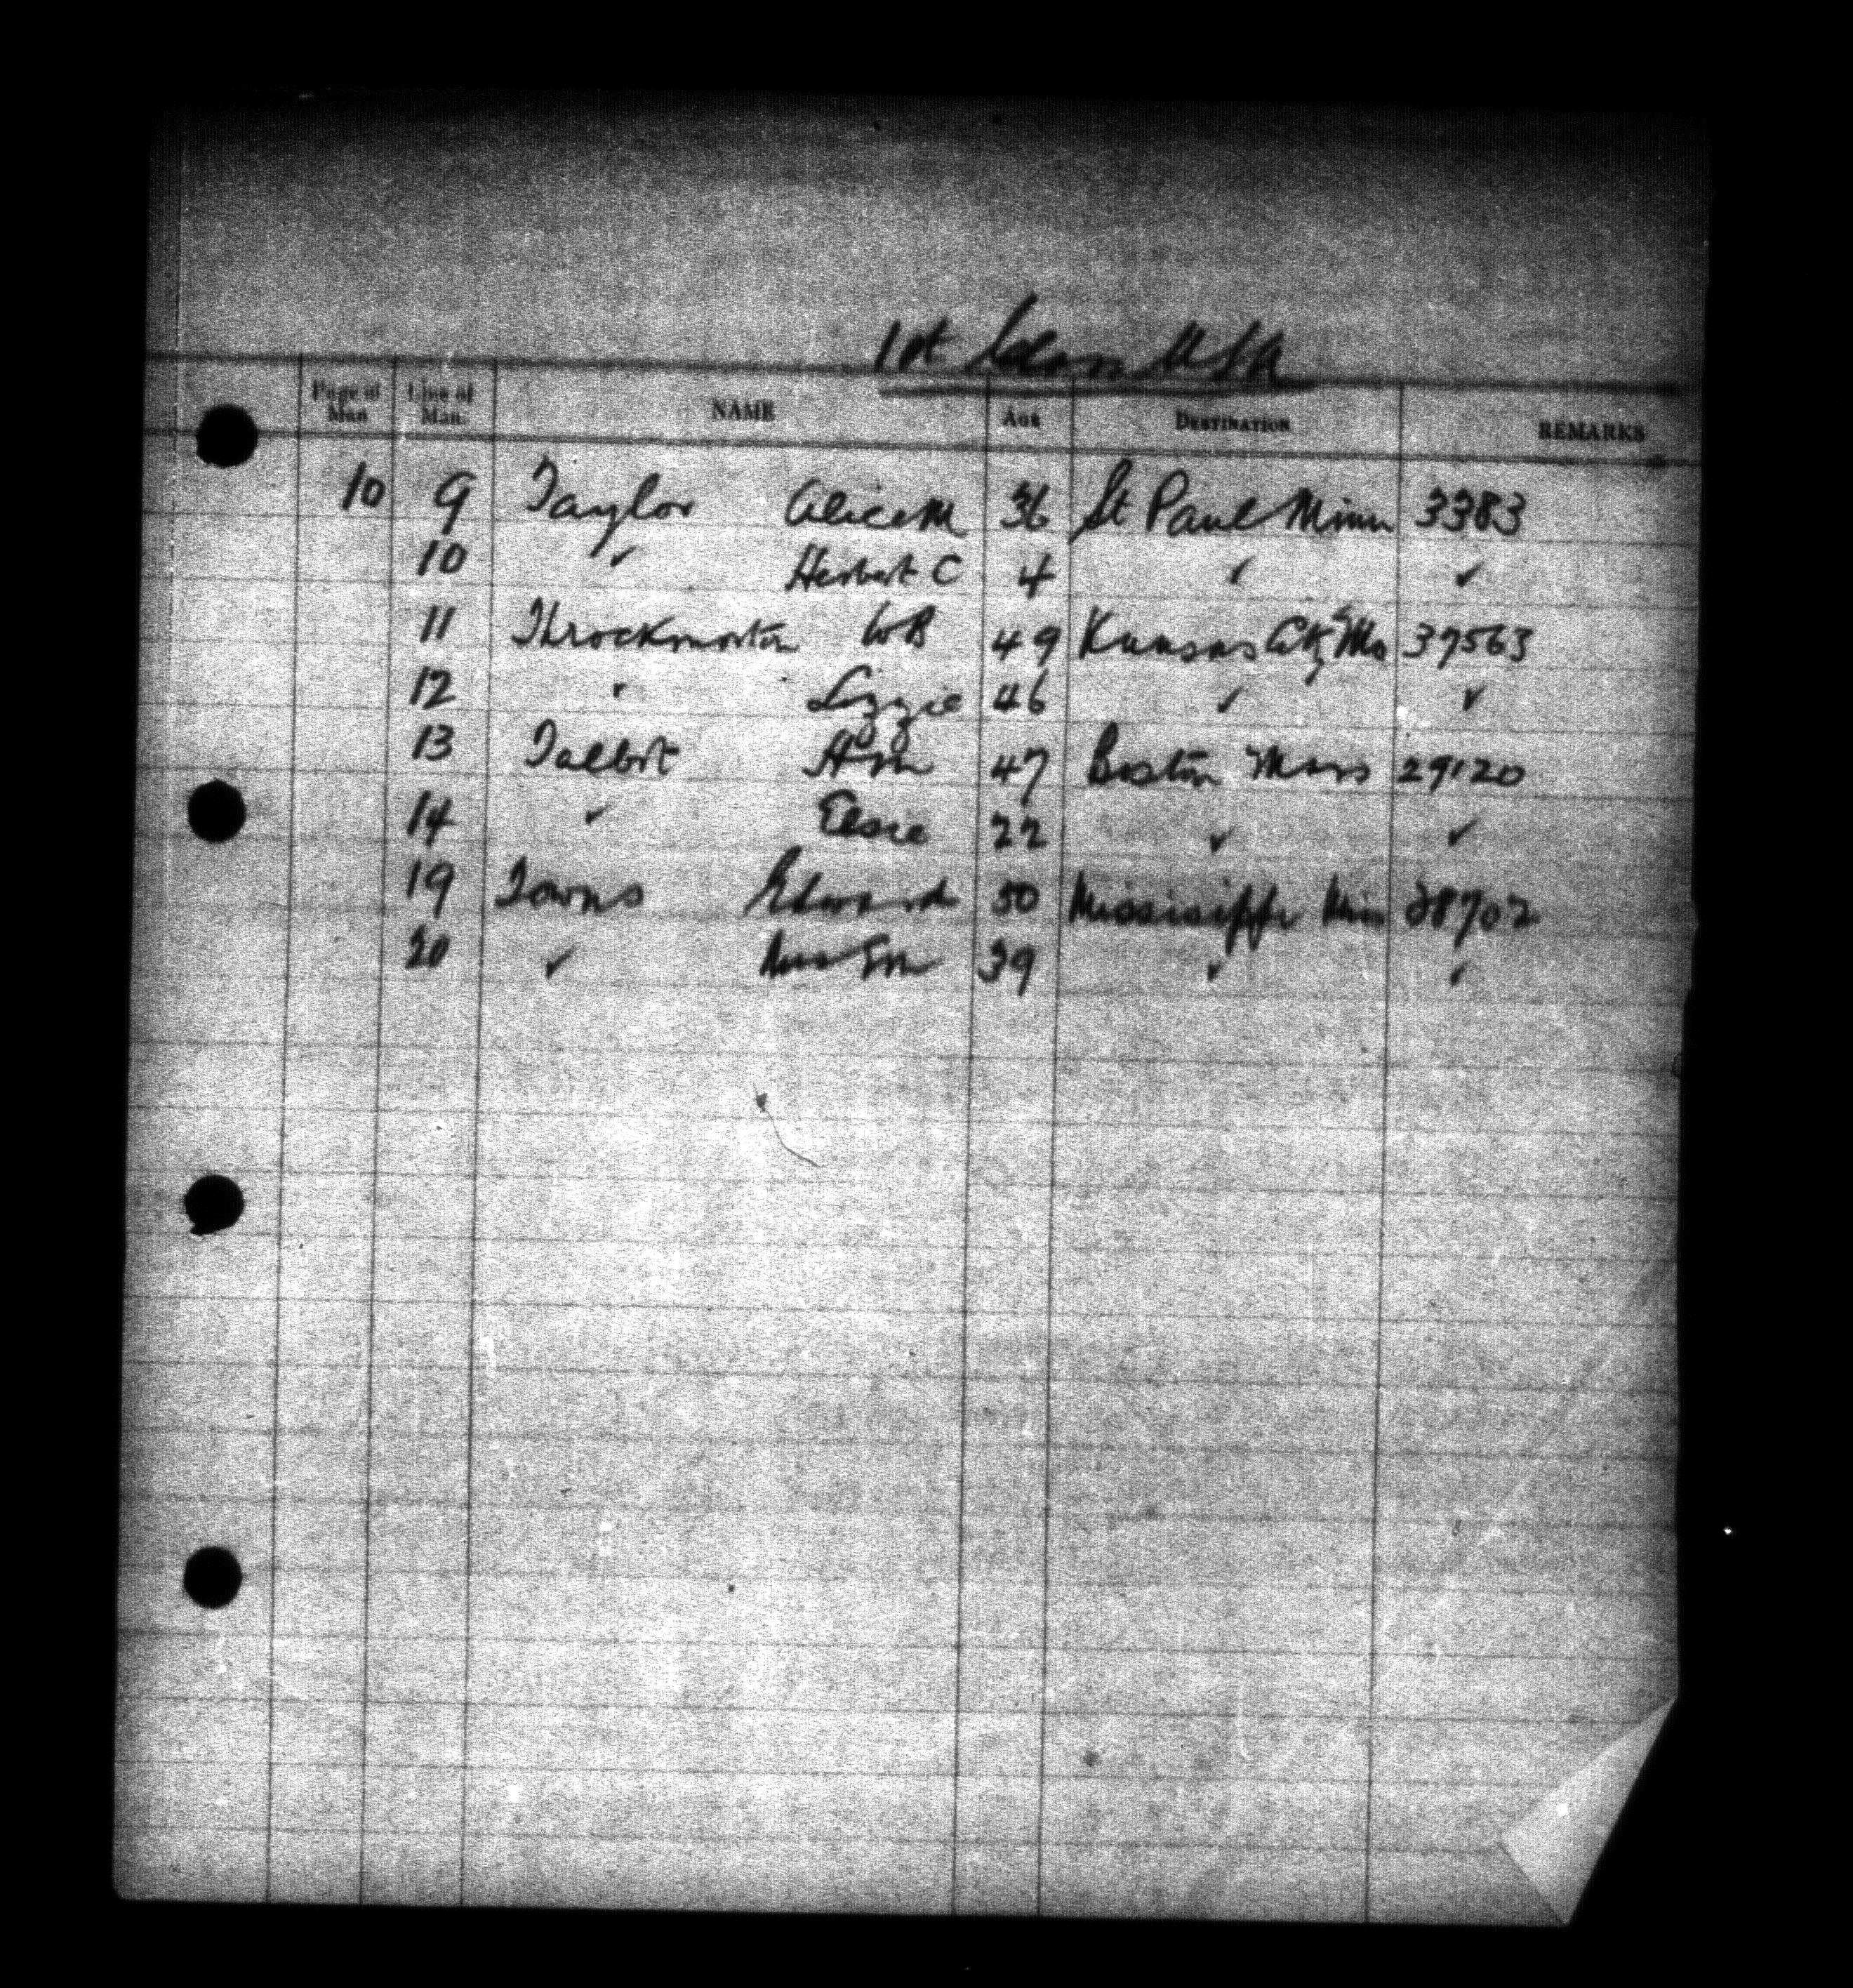 1st Class USA
Page of Man Line of Man. NAME AGE DESTINATION REMARKS
10 9 Taylor Alice M 36 St Paul Minn 3383
10 ✓ Herbert C 4 ✓ ✓
11 Throckmorton WB 49 Kansas City Mo 37563
12 ✓ Lizzie 46 ✓ ✓
13 Talbot 47 Boston Mass 29120
14 ✓ Elsie 22 ✓ ✓
19 Towns Edward 50 Mississippi 28702
20 ✓ 39 ✓ ✓